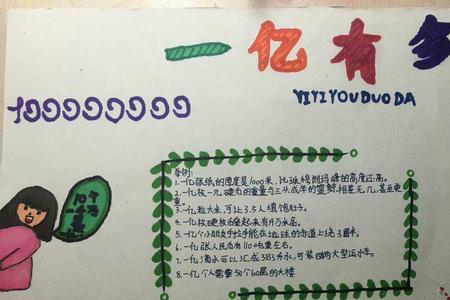 一亿有多
YIYIYOUDUODA
100000000
10个千万
举例:
1.一亿张纸的厚度是1000米,比珠穆朗玛峰的高度还高。
2.一亿枚一元硬币的重量与三头成年的蓝鲸相差无几,甚至更重。
3.一亿粒大米,可让3.5人填饱肚子。
4.一亿枚硬币叠起来有19万米高。
5.一亿个小朋友手拉手能在地球的赤道上绕3圈半。
6.一亿张人民币有110吨重左右。
7.一亿滴水可以汇成3333升水,可装满两大型运水车。
8.一亿个人需要50个60层的大楼